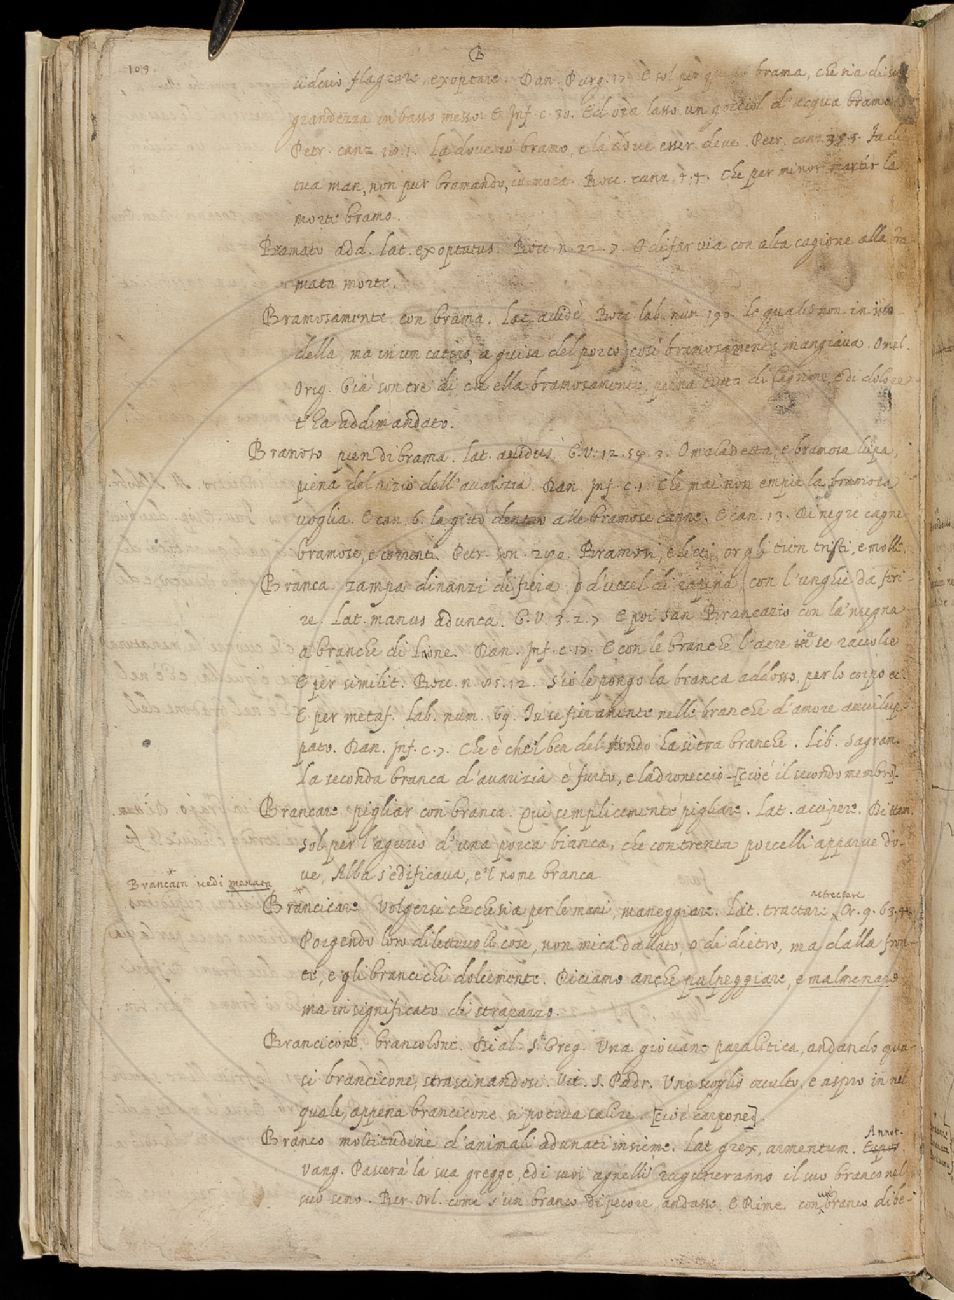 109.
B
siderio flagrare, exoptare. Dan. Purg. 17. E sol per questo brama, che sia di sua
grandezza in basso messo. E Inf. c. 30. Ed ora lasso un gocciol d'acqua bramo.
Petr. canz. La dove io bramo, e là dove esser deve. Petr. canz.
tua man, non pur bramando, Bocc. canz. Che per minor martir la
morte bramo.
Bramato add. lat. exoptatus. Bocc. n. 22. 7. via con alta cagione alla bra-
mata morte.
Bramosamente con brama. Lat. avidè. Bocc. lab. num. 190. le quali non in iscodella
della, ma in un catino, a guisa del porco, così bramosamente mangiava.
Orig. Già son tre dì che ella bramosamente, piena tutta di lagrime, e di dolore
t'ha addimandato.
Bramoso pien di brama. lat. avidus. G. V. 12. O maladetta, e bramosa lupa,
piena del vizio dell'avarizia. Dan. Inf. c. 1. Che mai non empie la bramosa
voglia. E can. 6. la gittò dentro alle bramose canne. E can. 13. Di negre cagne
bramose, e correnti. Petr. son. Bramosi, e lieti, or gli tien tristi, e molli.
Branca zampa dinanzi di fiera, o d'uccel di rapina con l'unghie da feri-
re. Lat. manus adunca. G. V. E poi San Brancazio con la 'nsegna
a branche di lione. Dan. Inf. c. 17. E con le branche l'aere a se raccolse
E per similit. Bocc. n. S'io le pongo la branca addosso, per lo corpo ec.
E per metaf. Lab. num. 69. fieramente nelle branche d'amore avvilup-
pato. Dan. Inf. c. 7. Che è che 'l ben del Mondo ha sì tra branche. Lib. Sagram.
La seconda branca d'avarizia è furto, e ladroneccio [cioè il secondo membro].
Brancare pigliar con branca. Qui semplicemente pigliare. Lat. accipere. Dittam.
Sol per l'agurio d'una porca bianca, che con trenta porcelli apparve do-
ve, Alba s'edificava, e 'l nome branca
Brancain vedi menata
Brancicare Volgersi che che sia per le mani, maneggiare. Lat. tractare attrectare Cr. 9. 63.
Porgendo loro dilettevoli cose, non mica da lato, o di dietro, ma dalla fron-
te, e gli brancichi dolcemente. Diciamo anche palpeggiare, e malmenare
ma in significato di strapazzo.
Brancicone. brancolone. Dial. S. Greg. Una giovane paralitica, andando qua-
si brancicone, strascinandosi. Vit. S. Padr. Uno scoglio occulto, e aspro in nel
quale, appena brancicone si poteva salire. [cioè carpone]
Branco moltitudine d'animali adunati insieme. Lat. grex, armentum. Annot.
Vang. Pascerà la sua gregge, ed i suoi agnelli ragunerà il suo branco nel
suo seno. Ber. Orl. come s'un branco di pecore, andasse. E Rime. con un branco di be-